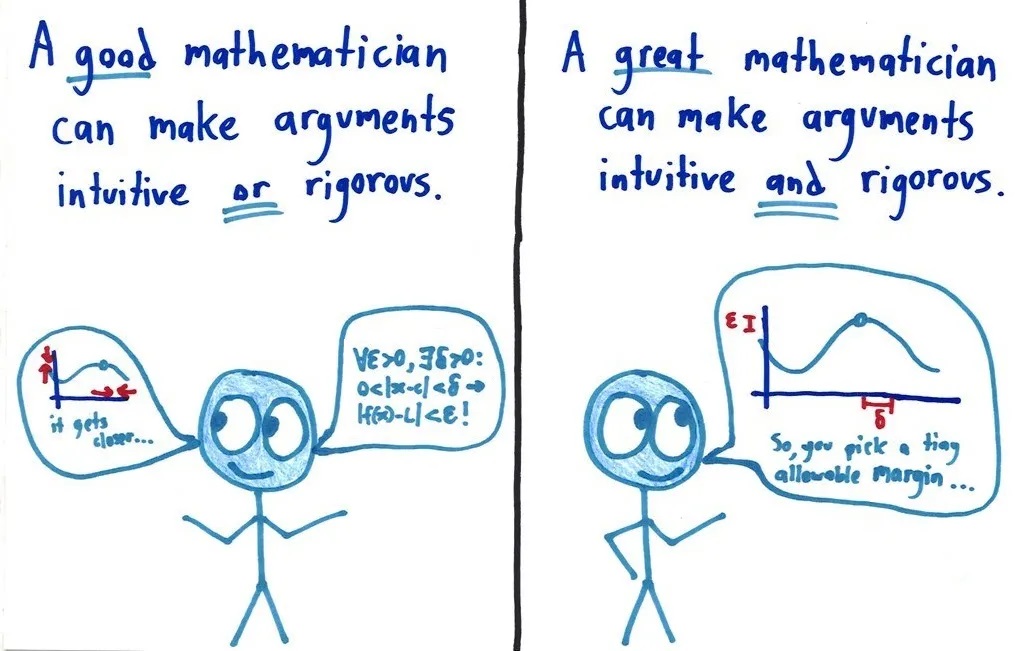 A good mathematician
can make arguments
intuitive or rigorous.
it gets
closer...
∀ε>0, ∃δ>0:
0<|x-c|<δ→
|f(x)-L|<ε!
A great mathematician
can make arguments
intuitive and rigorous.
ε
δ
So, you pick a tiny
allowable margin...